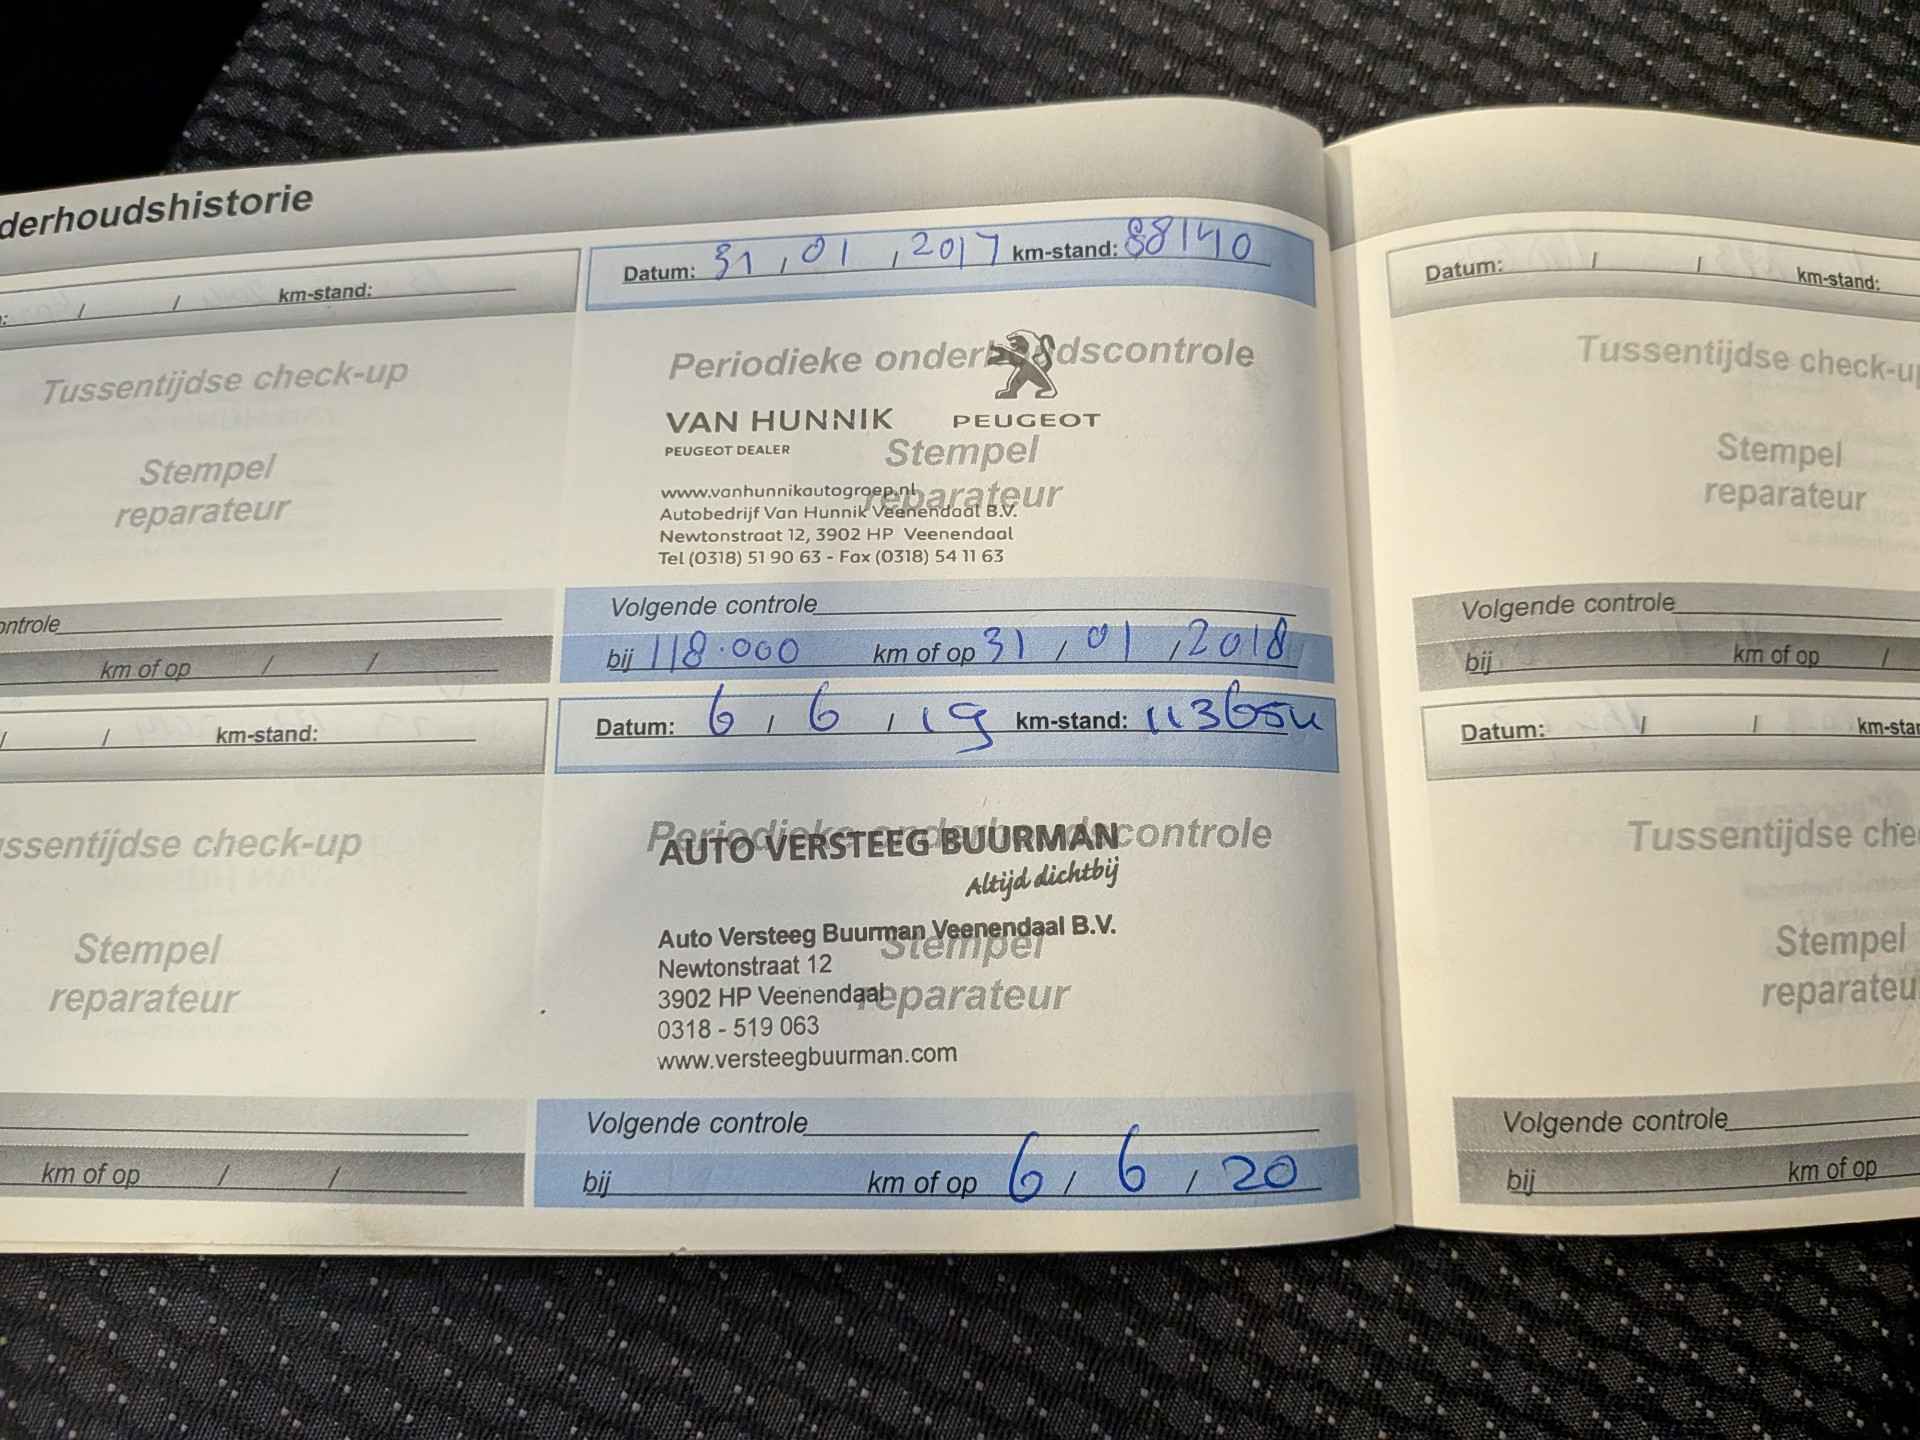 derhoudshistorie
/ / km-stand:
Tussentijdse check-up
Stempel
reparateur
ontrole
km of op / /
/ / km-stand:
ssentijdse check-up
Stempel
reparateur
km of op / /
Datum: 31 , 01 , 2017 km-stand: 88140
Periodieke onderhoudscontrole
VAN HUNNIK PEUGEOT
PEUGEOT DEALER
Stempel
reparateur
www.vanhunnikautogroep.nl
Autobedrijf Van Hunnik Veenendaal B.V.
Newtonstraat 12, 3902 HP Veenendaal
Tel (0318) 51 90 63 - Fax (0318) 54 11 63
Volgende controle
bij 118.000 km of op 31 / 01 , 2018
Datum: 6 , 6 / 19 km-stand:
Periodieke onderhoudscontrole
AUTO VERSTEEG BUURMAN
Altijd dichtbij
Auto Versteeg Buurman Veenendaal B.V.
Stempel
Newtonstraat 12
3902 HP Veenendaal
reparateur
0318 - 519 063
www.versteegbuurman.com
Volgende controle
bij km of op 6 / 6 / 20
Datum: / / km-stand:
Tussentijdse check-up
Stempel
reparateur
Volgende controle
bij km of op /
Datum: / / km-star
Tussentijdse che
Stempel
reparateu
Volgende controle
bij km of op